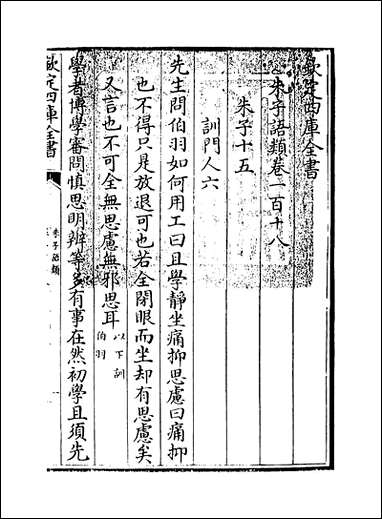 欽定四庫全書
朱子語類卷一百十八
朱子十五
訓門人六
先生問伯羽如何用工曰且學靜坐痛抑思慮曰痛抑
也不得只是放退可也若全閉眼而坐却有思慮矣
又言也不可全無思慮無邪思耳以下訓伯羽
學者博學審問慎思明辨等多有事在然初學且須先
欽定四庫全書
朱子語類